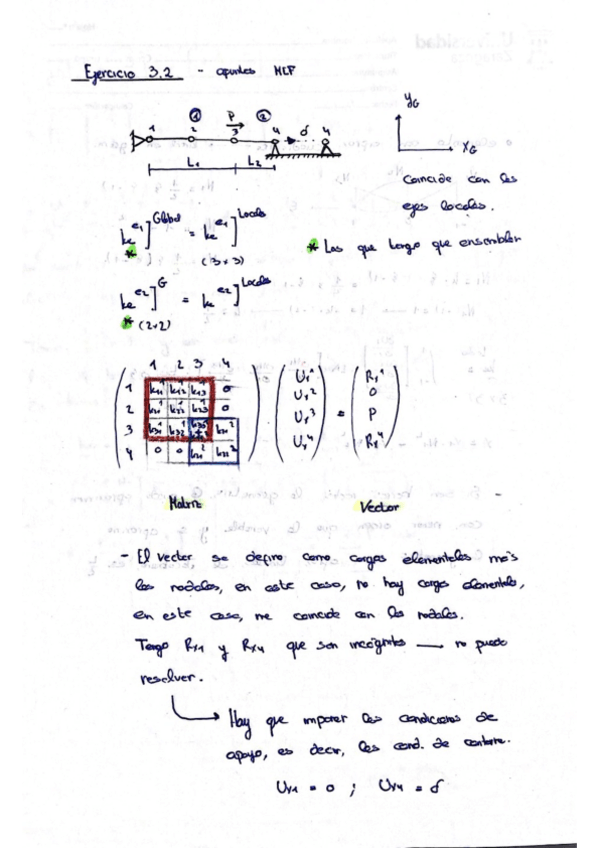 Ejercicio 3.2 - apuntes MEF
① ②
P
1 2 3 4 δ 4
L1 L2
yG
xG
Coincide con los
ejes locales.
ke^e1]Global = ke^e1]Locales
* (3x3)
* Los que tengo que ensamblar
ke^e2]G = ke^e2]Locales
* (2x2)
1 2 3 4
1 k11^1 k12^1 k13^1 0 U1^1 Rx^1
2 k21^1 k22^1 k23^1 0 Ux^2 0
3 k31^1 k32^1 k12^2 Ux^3 = P
4 0 0 k21^2 k22^2 Ux^4 Rx^4
Matriz Vector
- El vector se define como cargas elementales más
las nodales, en este caso, no hay cargas elementales,
en este caso, me coincide con las nodales.
Tengo Rx1 y Rx4 que son incógnitas — no puedo
resolver.
Hay que imponer las condiciones de
apoyo, es decir, las cond. de contorno.
Ux1 = 0 ; Ux4 = δ